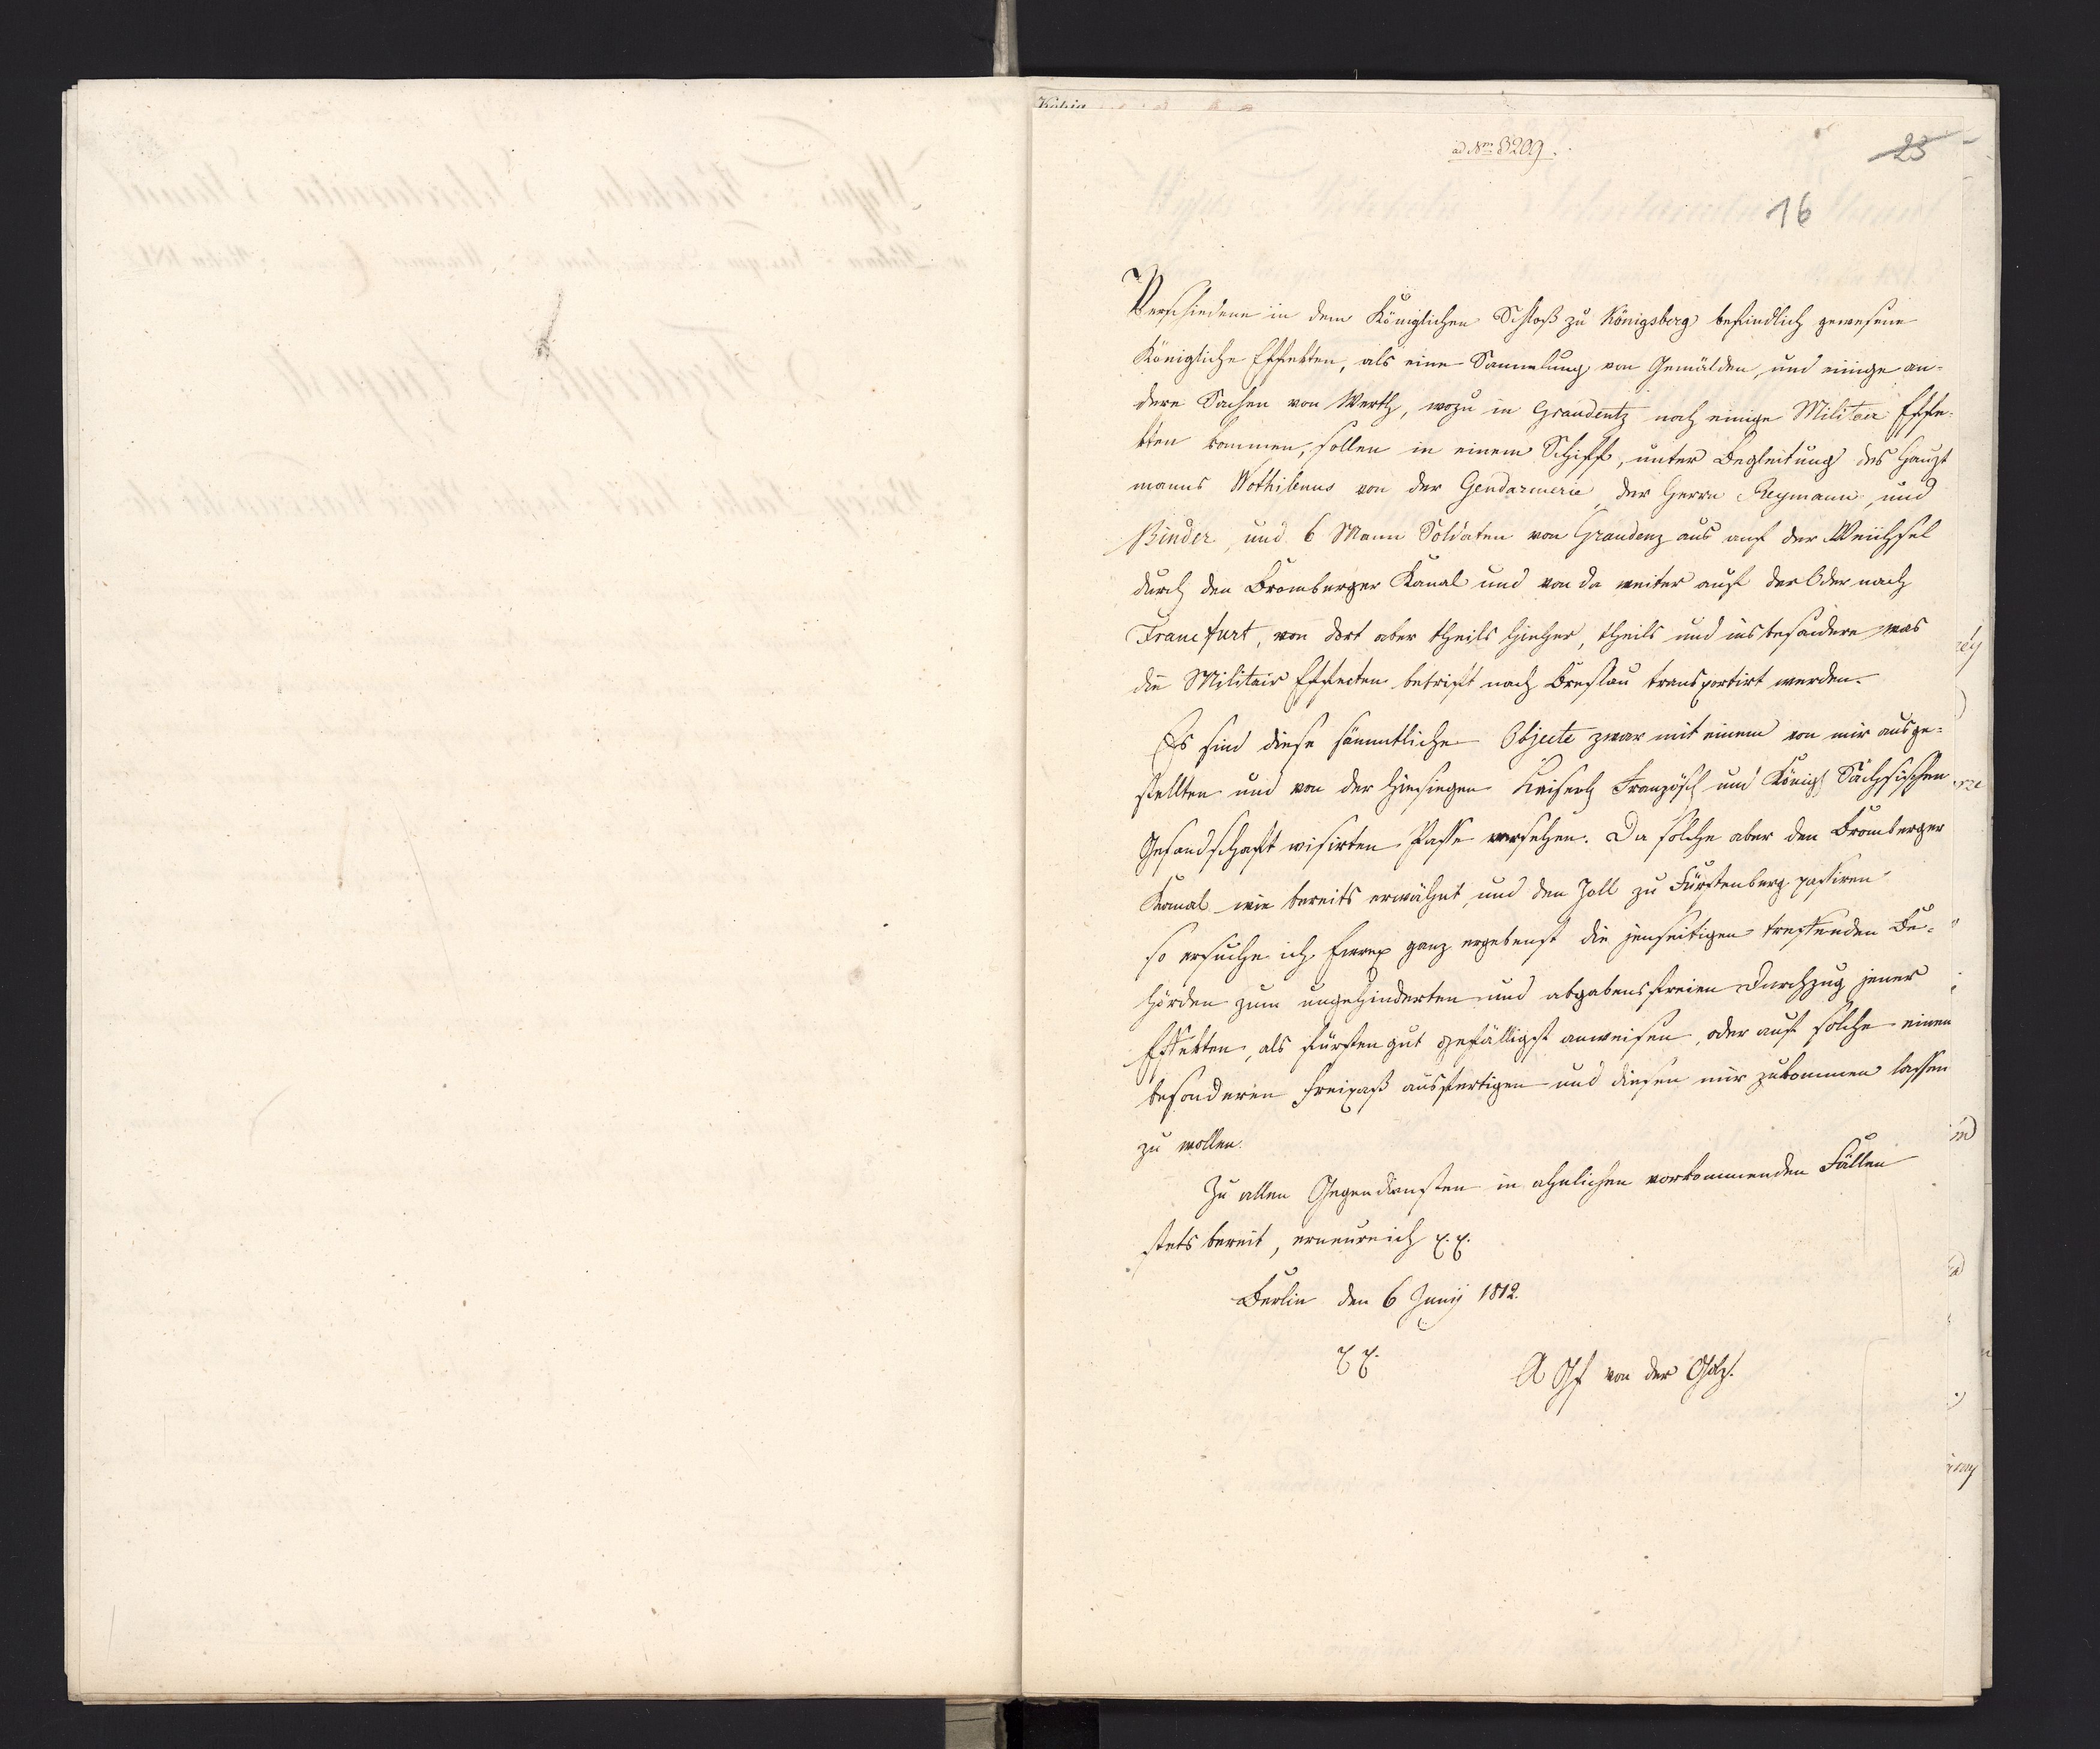 ad Nro 3209.
23
16
Verschiedene in dem Königlichen Schloß zu Königsberg befindlich gewesene
Königliche Effekten, als eine Sammlung von Gemälden, und einige an-
dere Sachen von Werth, wozu in Graudentz noch einige Militair Effe-
kten kommen, sollen in einem Schiff, unter Begleitung des Haupt
manns Wothilenus von der Gendarmerie, der Herrn Reymann, und
Binder, und 6 Mann Soldaten von Graudenz aus auf der Weichsel
durch den Bromberger Kanal und von da weiter auf der Oder nach
Francfurt, von dort aber theils hieher, theils und insbesondere was
die Militair Effecten betrift nach Breslau transportirt werden.
Es sind diese sämmtliche Objecte zwar mit einem von mir ausge-
stellten und von der hiesigen Kaiserl Französch und Königl Sächsischen
Gesandschaft visirten Passe versehen. Da solche aber den Bromberger
Kanal wie bereits erwähnt, und den Zoll zu Fürstenberg passiren
so ersuche ich Ew ganz ergebenst die jenseitigen treffenden Be-
hörden zum ungehinderten und abgabensfreien Durchzug jener
Effekten, als fürsten gut gefälligst anweisen, oder auf solche einen
besonderen Freipaß ausfertigen und diesen mir zukommen lassen
zu wollen.
Zu allen Gegendiensten in ahnlichen vorkommenden Fällen
stets bereit, erneure ich p. p.
Berlin den 6 Junij 1812.
p p.
A Gf von der Goltz.